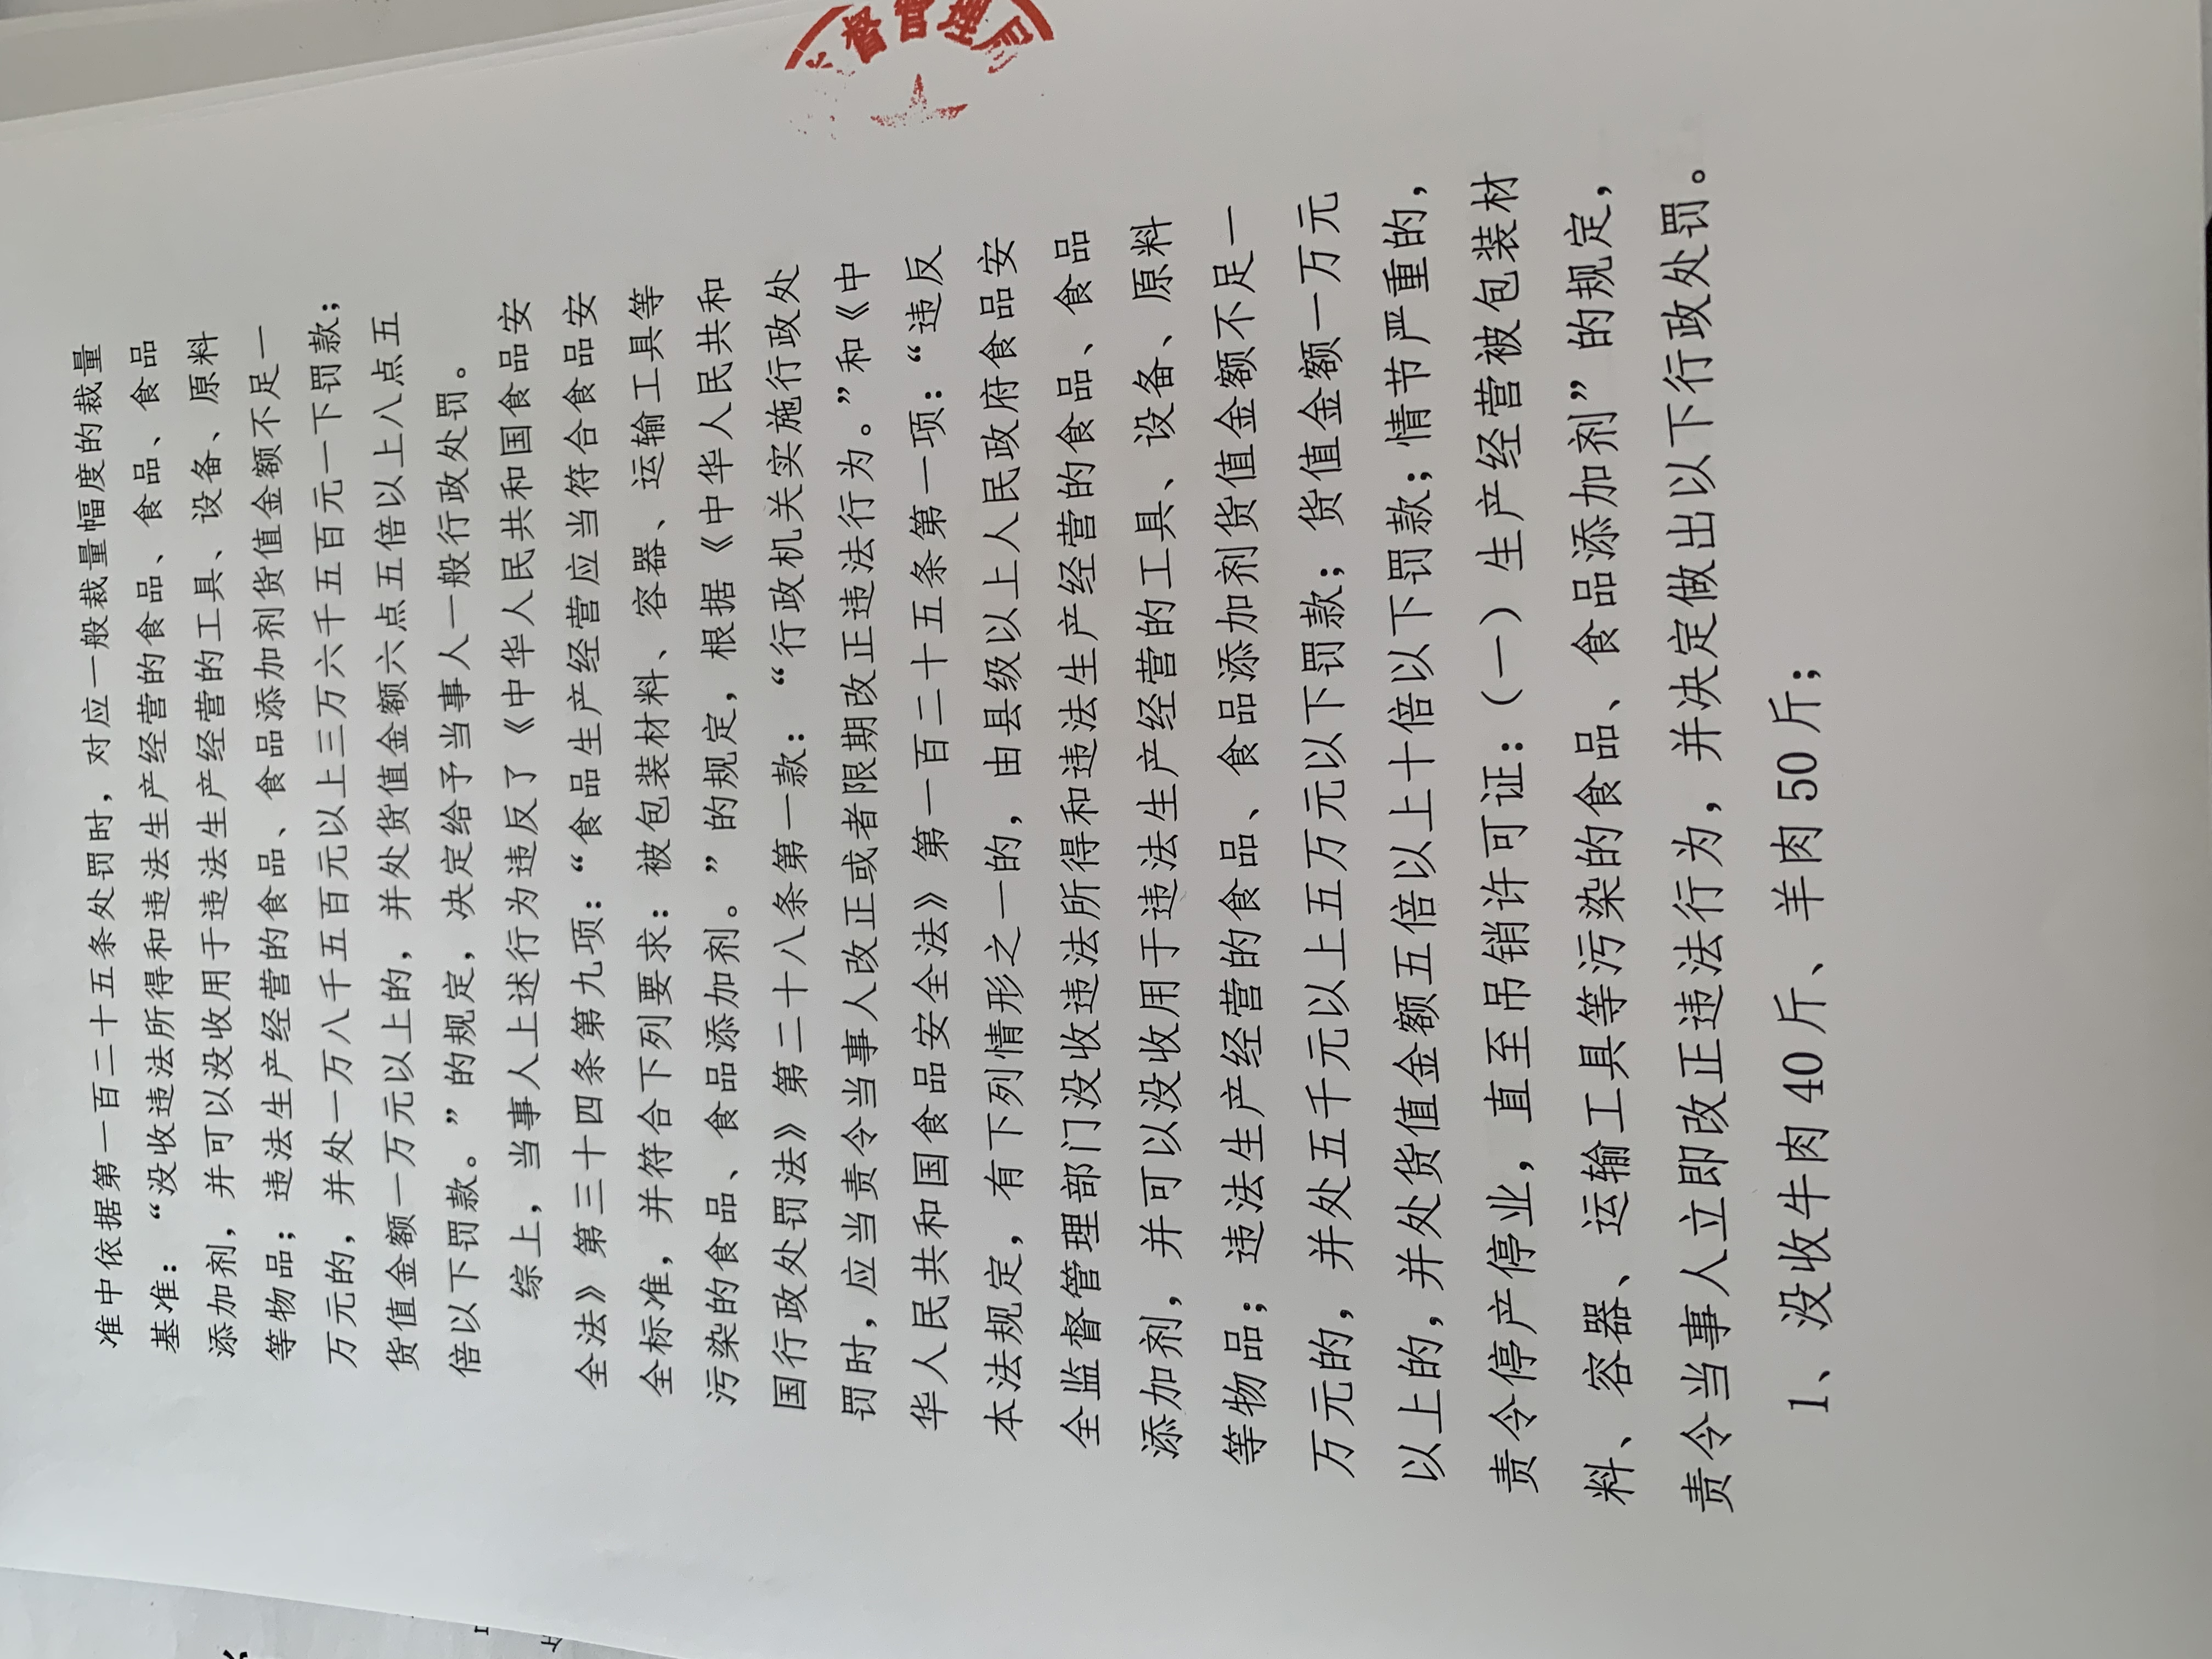 准中依据第一百二十五条处罚时，对应一般裁量幅度的裁量
基准：“没收违法所得和违法生产经营的食品、食品、食品
添加剂，并可以没收用于违法生产经营的工具、设备、原料
等物品；违法生产经营的食品、食品添加剂货值金额不足一
万元的，并处一万八千五百元以上三万六千五百元一下罚款；
货值金额一万元以上的，并处货值金额六点五倍以上八点五
倍以下罚款。”的规定，决定给予当事人一般行政处罚。
综上，当事人上述行为违反了《中华人民共和国食品安
全法》第三十四条第九项：“食品生产经营应当符合食品安
全标准，并符合下列要求：被包装材料、容器、运输工具等
污染的食品、食品添加剂。”的规定，根据《中华人民共和
国行政处罚法》第二十八条第一款：“行政机关实施行政处
罚时，应当责令当事人改正或者限期改正违法行为。”和《中
华人民共和国食品安全法》第一百二十五条第一项：“违反
本法规定，有下列情形之一的，由县级以上人民政府食品安
全监督管理部门没收违法所得和违法生产经营的食品、食品
添加剂，并可以没收用于违法生产经营的工具、设备、原料
等物品；违法生产经营的食品、食品添加剂货值金额不足一
万元的，并处五千元以上五万元以下罚款；货值金额一万元
以上的，并处货值金额五倍以上十倍以下罚款；情节严重的，
责令停产停业，直至吊销许可证：（一）生产经营被包装材
料、容器、运输工具等污染的食品、食品添加剂”的规定，
责令当事人立即改正违法行为，并决定做出以下行政处罚。
1、没收牛肉 40 斤、羊肉 50 斤；
督管理局